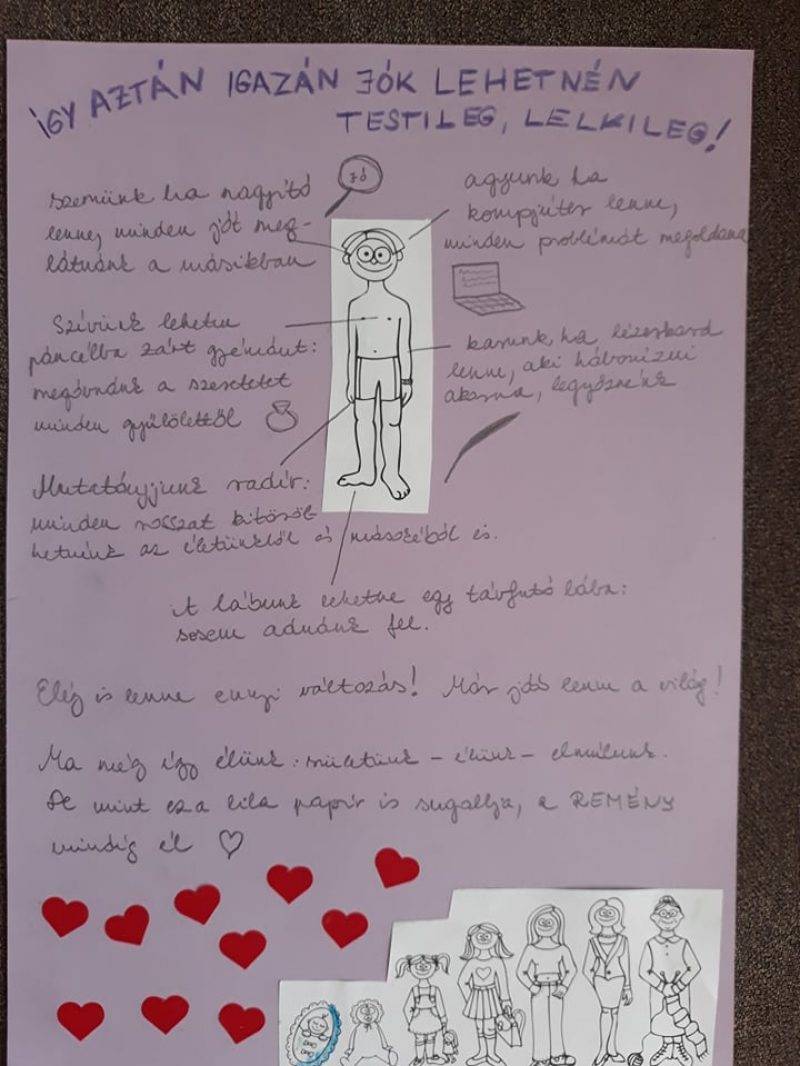 ÍGY AZTÁN IGAZÁN JÓK LEHETNÉN
TESTILEG, LELKILEG!
szemünk ha nagyító
lenne, minden jót meg-
látnánk a másikban
JÓ
agyunk ha
kompjúter lenne,
minden problémát megoldana
Szívünk lehetne
páncélba zárt gyémánt:
megóvnánk a szeretetet
minden gyűlölettől
karunk, ha lézerkard
lenne, aki háborúzni
akarna, legyőznénk
Mutatóujjunk radír:
minden rosszat kitöröl-
hetnénk az életünkből és másokéból is.
A lábunk lehetne egy távfutó lába:
sosem adnánk fel.
Elég is lenne ennyi változás! Már jobb lenne a világ!
Ma még így élünk: születünk - élünk - elmúlunk.
De mint ez a lila papír is sugallja, a REMÉNY
mindig él